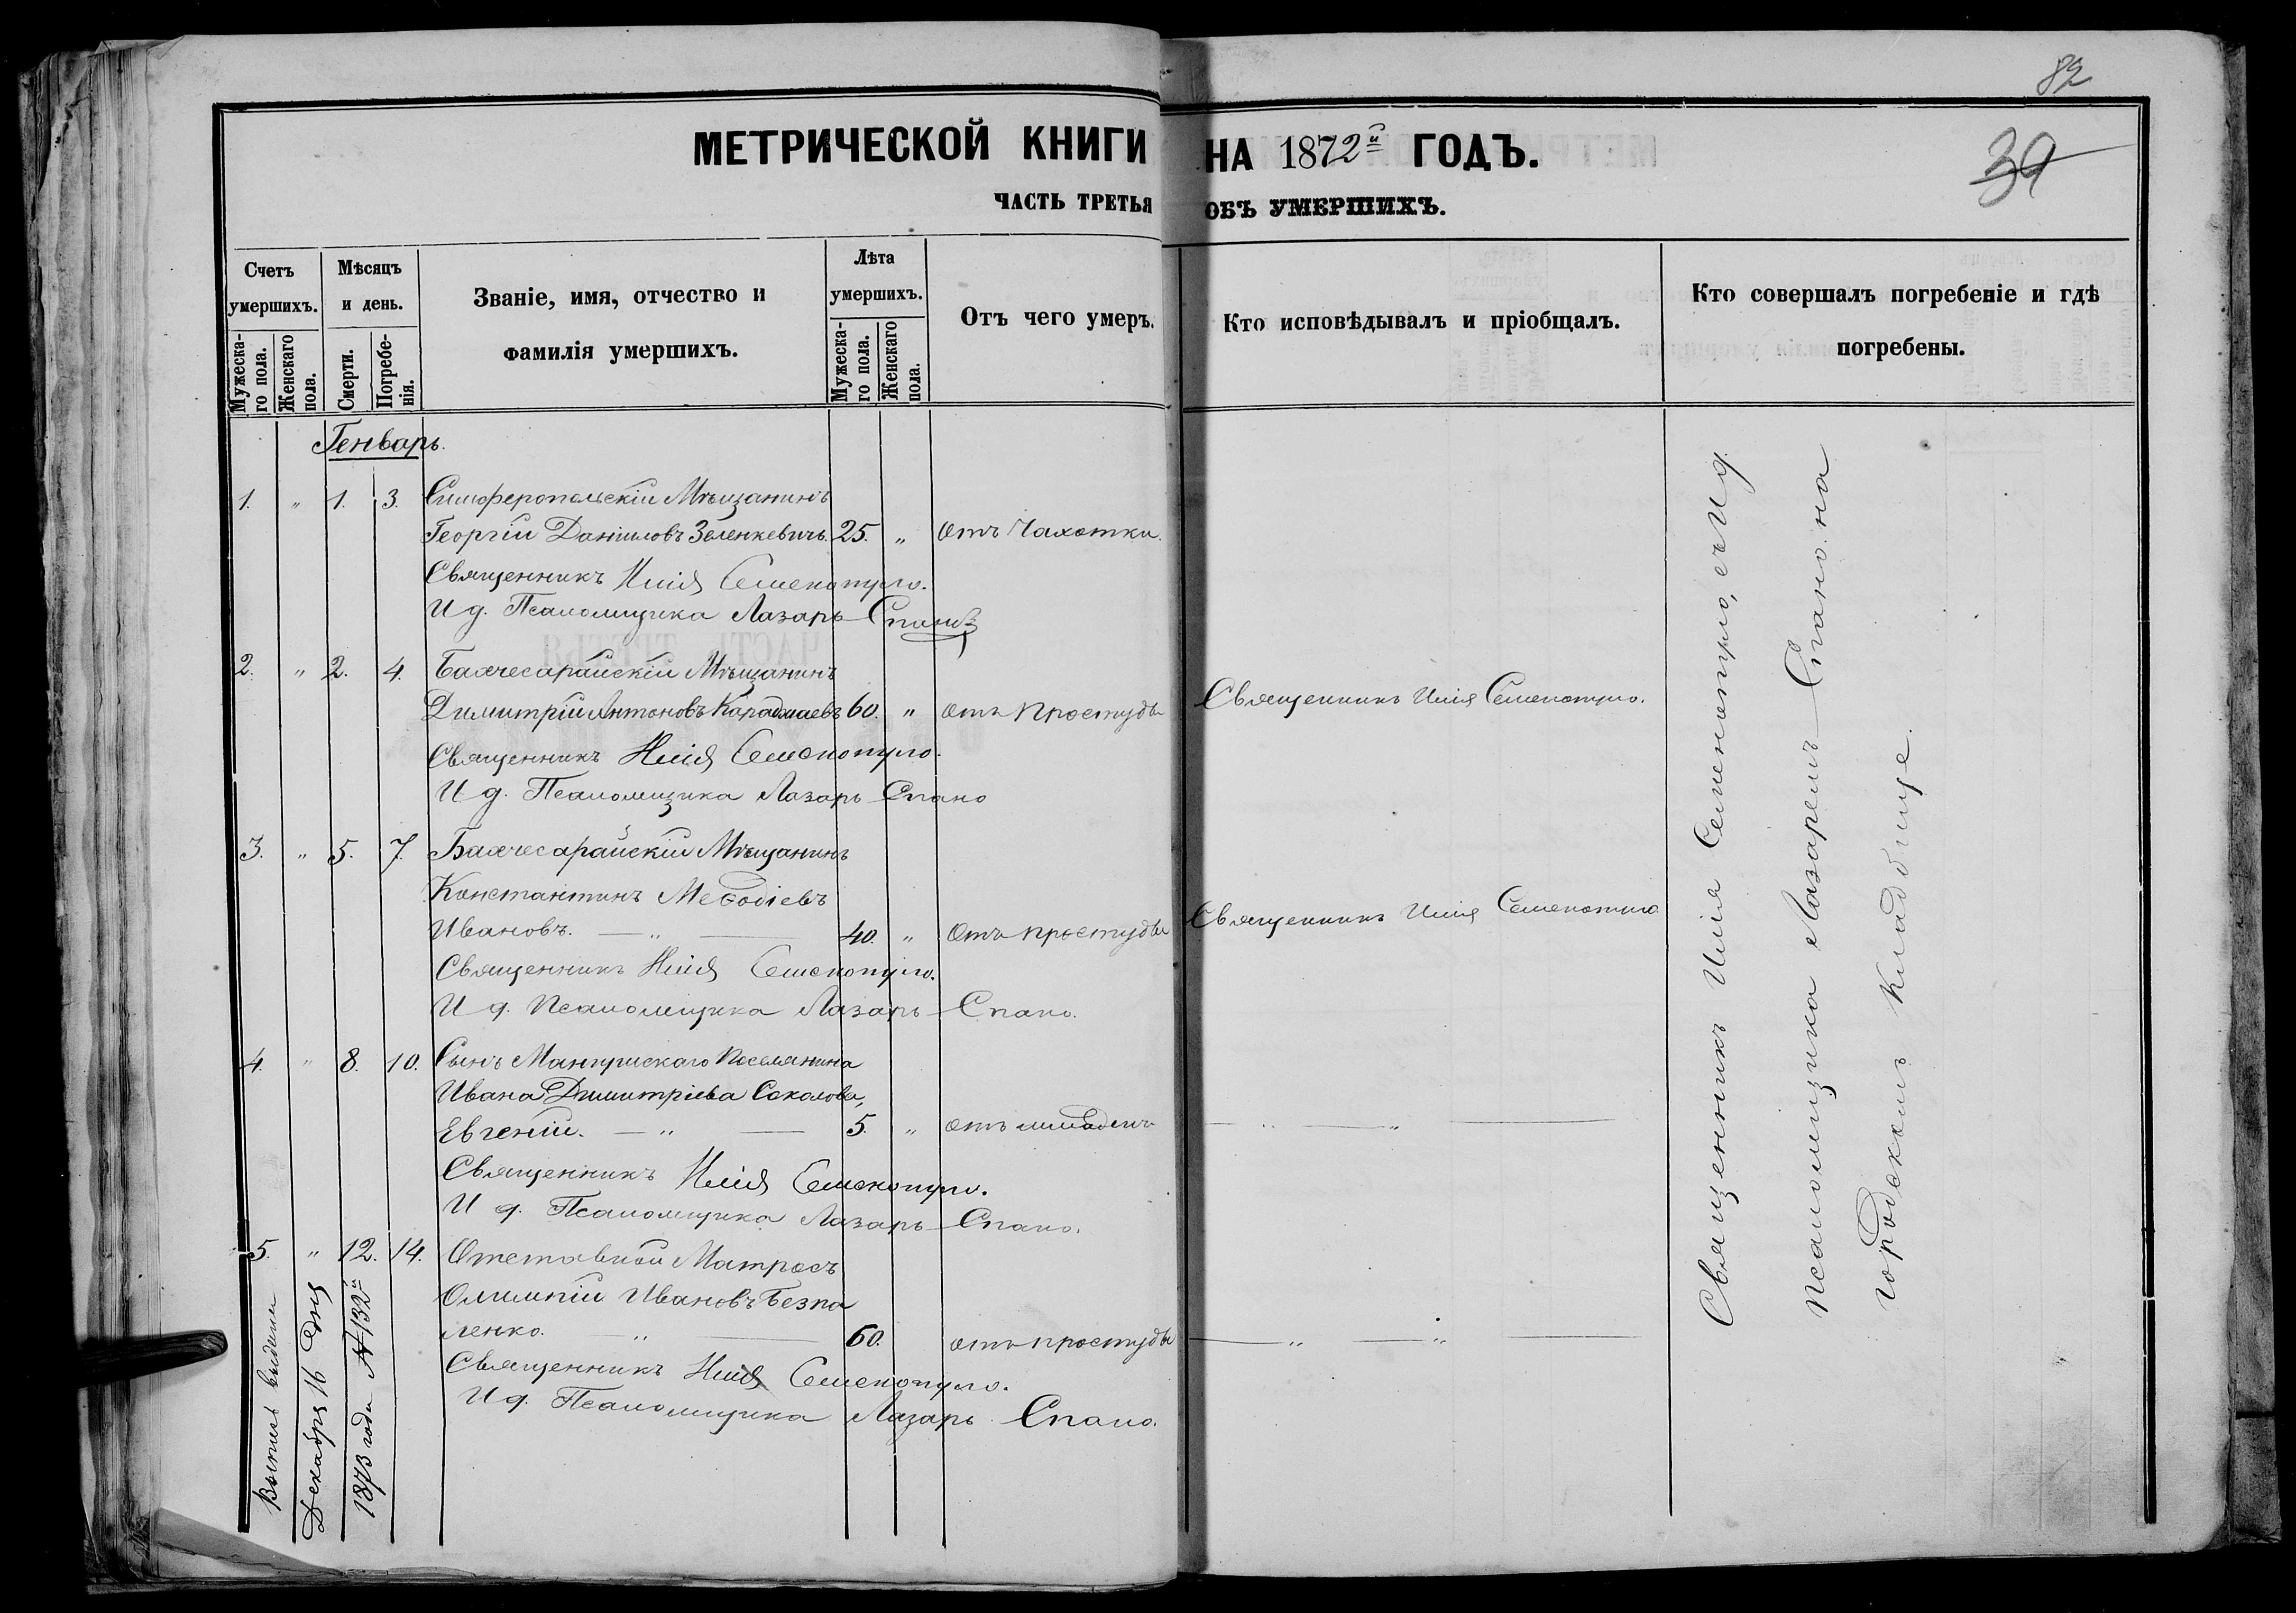 82
39
МЕТРИЧЕСКОЙ КНИГИ НА 1872й ГОДЪ.
ЧАСТЬ ТРЕТЬЯ ОБЪ УМЕРШИХЪ.
Счетъ умершихъ.
Мужеска-го пола.
Женскаго пола.
Мѣсяцъ и день.
Смерти.
Погребе-нія.
Званіе, имя, отчество и фамилія умершихъ.
Лѣта умершихъ.
Мужеска-го пола.
Женскаго пола.
Отъ чего умеръ.
Кто исповѣдывалъ и пріобщалъ.
Кто совершалъ погребеніе и гдѣ погребены.
Генварь.
1. " 1. 3. Симферопольскій Мѣщанинъ
Георгій Даніиловъ Зеленкевичъ. 25. " Отъ Чахотки.
Священникъ Илія Семенопуло.
И д. Псаломщика Лазарь Спано
2. " 2. 4. Бахчесарайскій Мѣщанинъ
Димитрій Антоновъ 60. " Отъ Простуды Священникъ Илія Семенопуло.
Священникъ Илія Семенопуло.
И д. Псаломщика Лазарь Спано
3. " 5. 7. Бахчесарайскій Мѣщанинъ
Константинъ Меѳодіевъ
Ивановъ. — " — 40. " Отъ простуды Священникъ Илія Семенопуло
Священникъ Илія Семенопуло.
И д. Псаломщика Лазарь Спано.
4. " 8. 10. Сынъ Мангушскаго Поселянина
Ивана Димитріева Соколова,
Евгеній. — " — 5. " отъ — " — " —
Священникъ Илія Семенопуло.
И д. Псаломщика Лазарь Спано.
5. " 12. 14. Отставной Матросъ
Олимпій Ивановъ Безпа
ленко. — " — 60. отъ простуды — " — " —
Священникъ Илія Семенопуло.
И д. Псаломщика Лазарь Спано.
Выпись выдана
Декабря 16 дня
1873 года № 132й
Священникъ Илія Семенопуло, съ И д.
псаломщика Лазаремъ Спано. на
городскомъ кладбище.